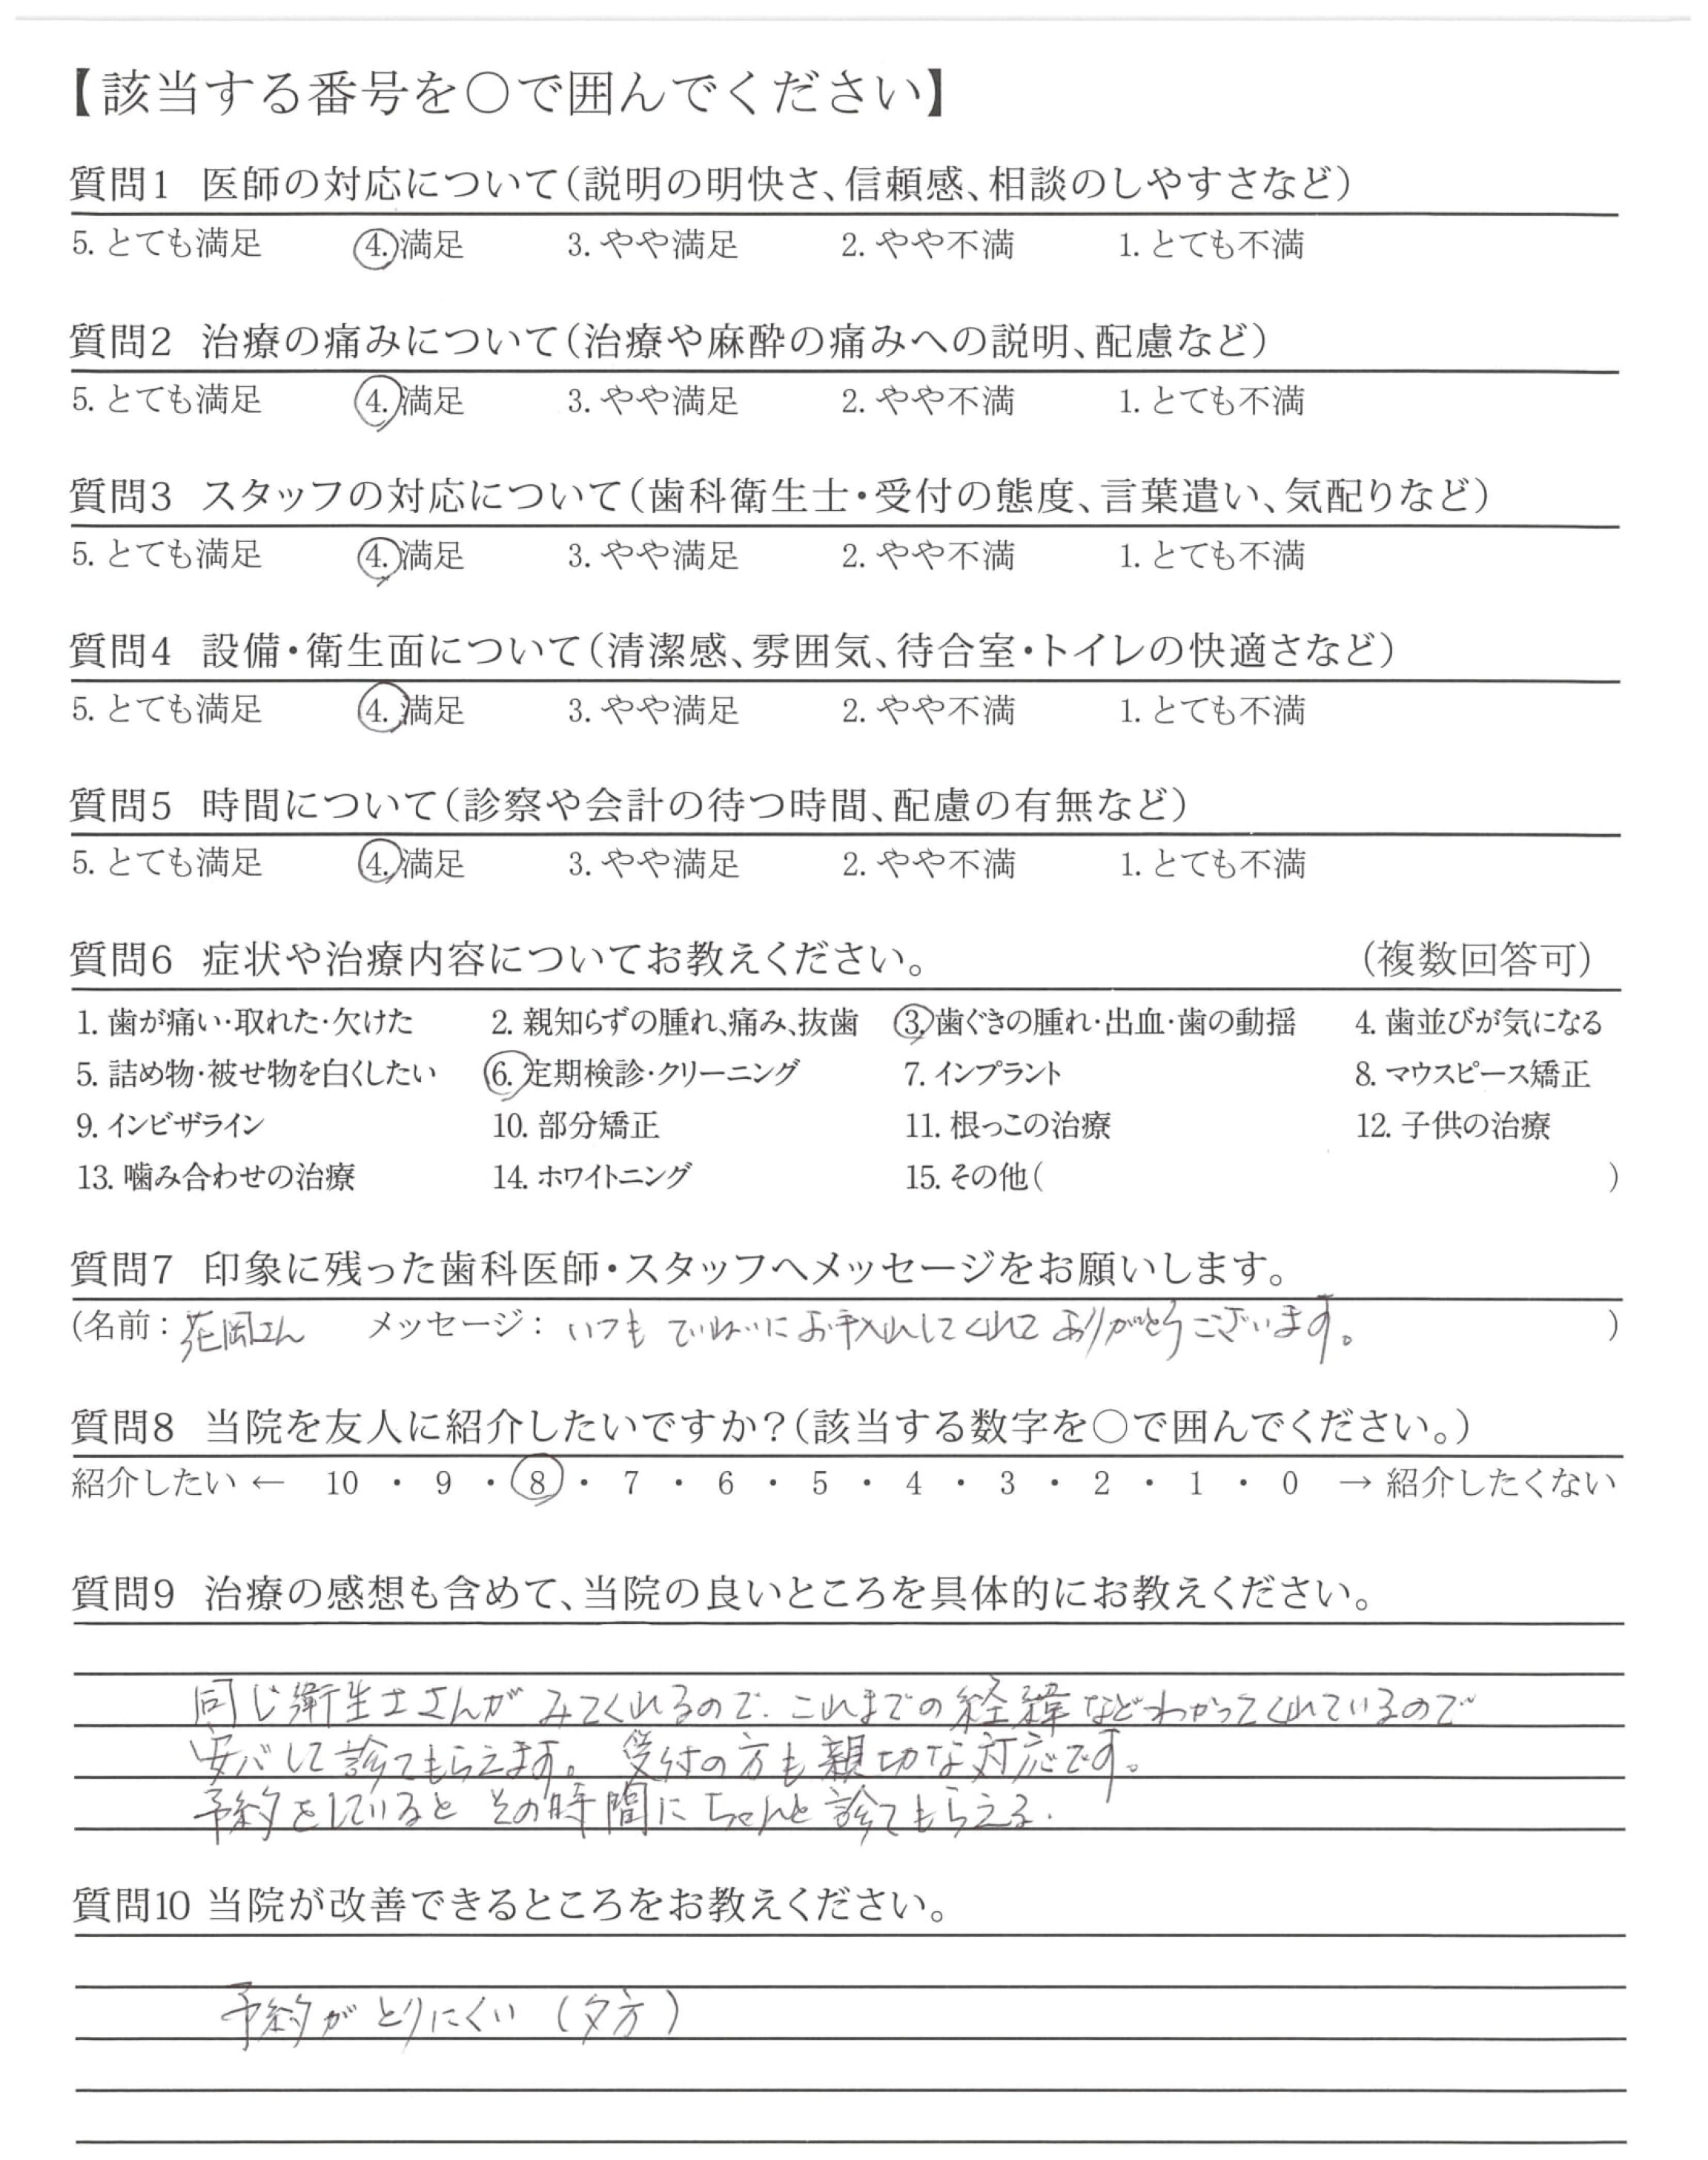 【該当する番号を○で囲んでください】
質問1 医師の対応について(説明の明快さ、信頼感、相談のしやすさなど)
5. とても満足 4. 満足 3. やや満足 2. やや不満 1. とても不満
質問2 治療の痛みについて(治療や麻酔の痛みへの説明、配慮など)
5. とても満足 4. 満足 3. やや満足 2. やや不満 1. とても不満
質問3 スタッフの対応について(歯科衛生士・受付の態度、言葉遣い、気配りなど)
5. とても満足 4. 満足 3. やや満足 2. やや不満 1. とても不満
質問4 設備・衛生面について(清潔感、雰囲気、待合室・トイレの快適さなど)
5. とても満足 4. 満足 3. やや満足 2. やや不満 1. とても不満
質問5 時間について(診察や会計の待つ時間、配慮の有無など)
5. とても満足 4. 満足 3. やや満足 2. やや不満 1. とても不満
質問6 症状や治療内容についてお教えください。 (複数回答可)
1. 歯が痛い・取れた・欠けた 2. 親知らずの腫れ、痛み、抜歯 3. 歯ぐきの腫れ・出血・歯の動揺 4. 歯並びが気になる
5. 詰め物・被せ物を白くしたい 6. 定期検診・クリーニング 7. インプラント 8. マウスピース矯正
9. インビザライン 10. 部分矯正 11. 根っこの治療 12. 子供の治療
13. 噛み合わせの治療 14. ホワイトニング 15. その他( )
質問7 印象に残った歯科医師・スタッフへメッセージをお願いします。
(名前: 花岡さん メッセージ: いつも ていねいにお手入れしてくれて ありがとうございます。 )
質問8 当院を友人に紹介したいですか?(該当する数字を○で囲んでください。)
紹介したい ← 10 ・ 9 ・ 8 ・ 7 ・ 6 ・ 5 ・ 4 ・ 3 ・ 2 ・ 1 ・ 0 → 紹介したくない
質問9 治療の感想も含めて、当院の良いところを具体的にお教えください。
同じ衛生士さんが みてくれるので、これまでの経緯などわかってくれているので
安心して診てもらえます。受付の方も親切な対応です。
予約をしていると その時間にちゃんと診てもらえる.
質問10 当院が改善できるところをお教えください。
予約がとりにくい (夕方)